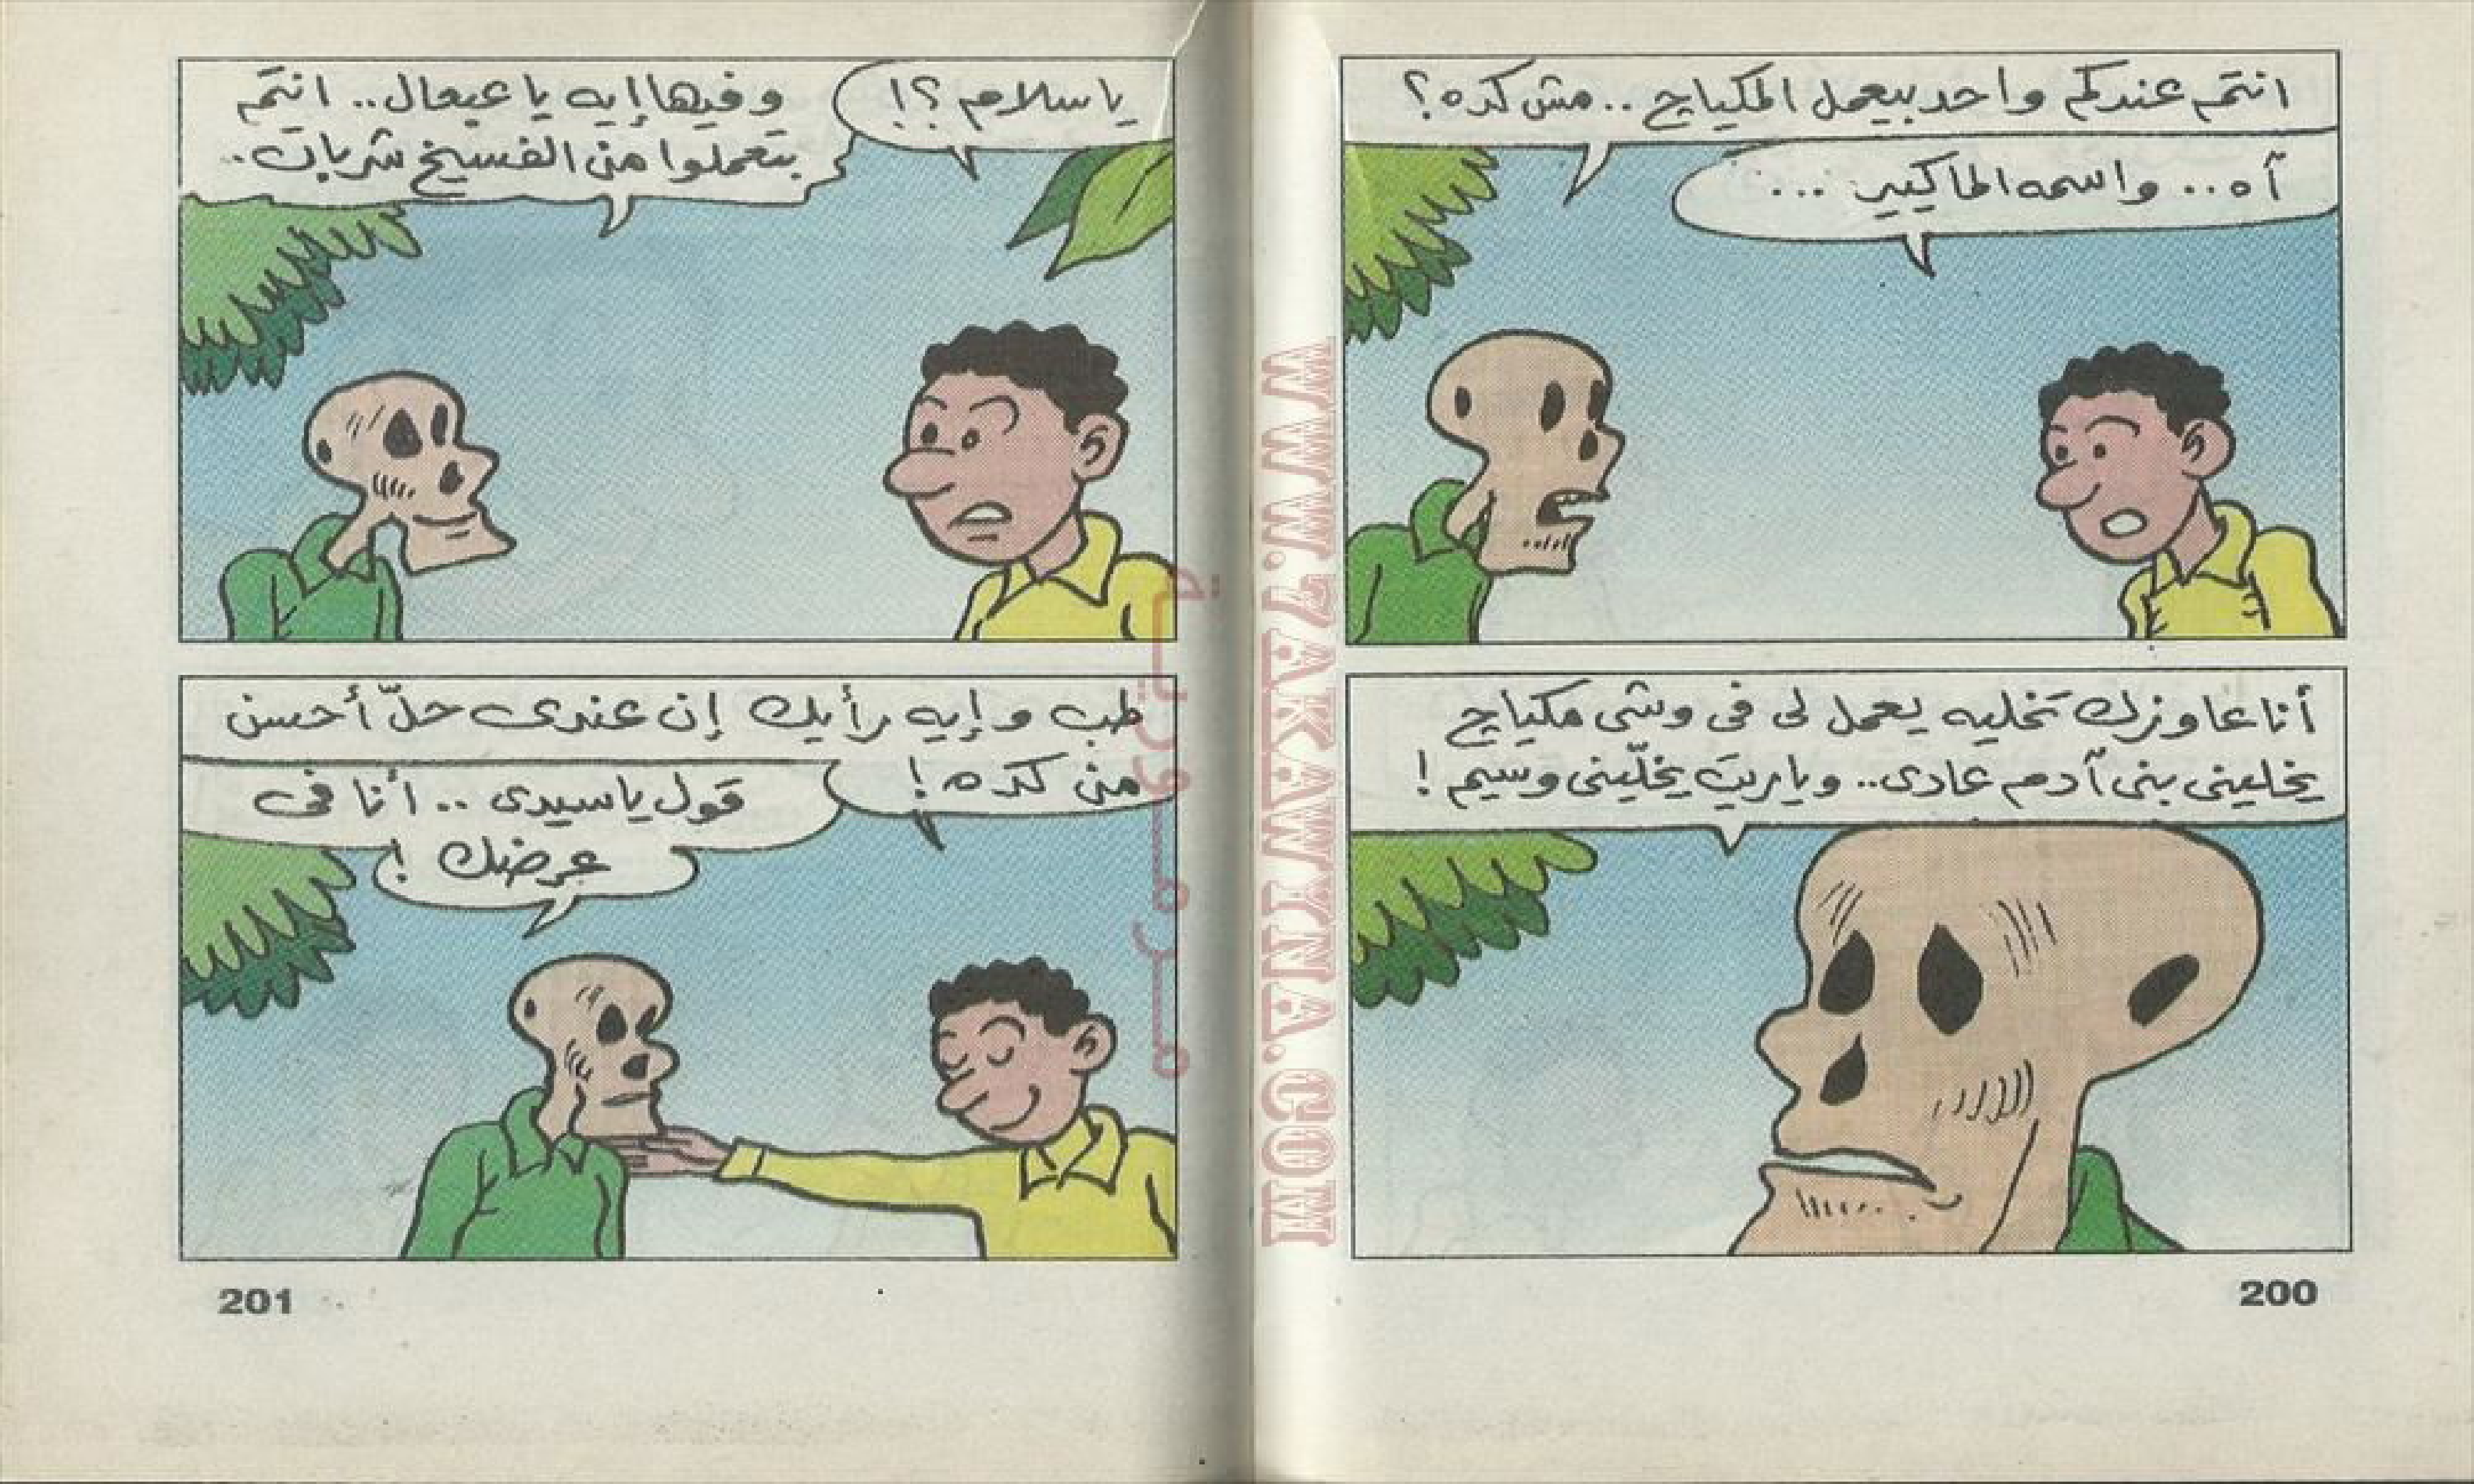 انتم عندكم واحد بيعمل المكياج .. مش كده؟
آه .. واسمه الماكيير ...
أنا عاوزك تخليه يعمل لى فى وشى مكياج
يخلينى بنى آدم عادى .. وياريت يخلّينى وسيم !
200
ياسلام ؟!
وفيها إيه يا عبعال .. انتم
بتعملوا من الفسيخ شربات ..
طب وإيه رأيك إن عندى حلّ أحسن
من كده !
قول ياسيدى .. أنا فى
عرضك !
201
WWW.7AKAWYNA.COM